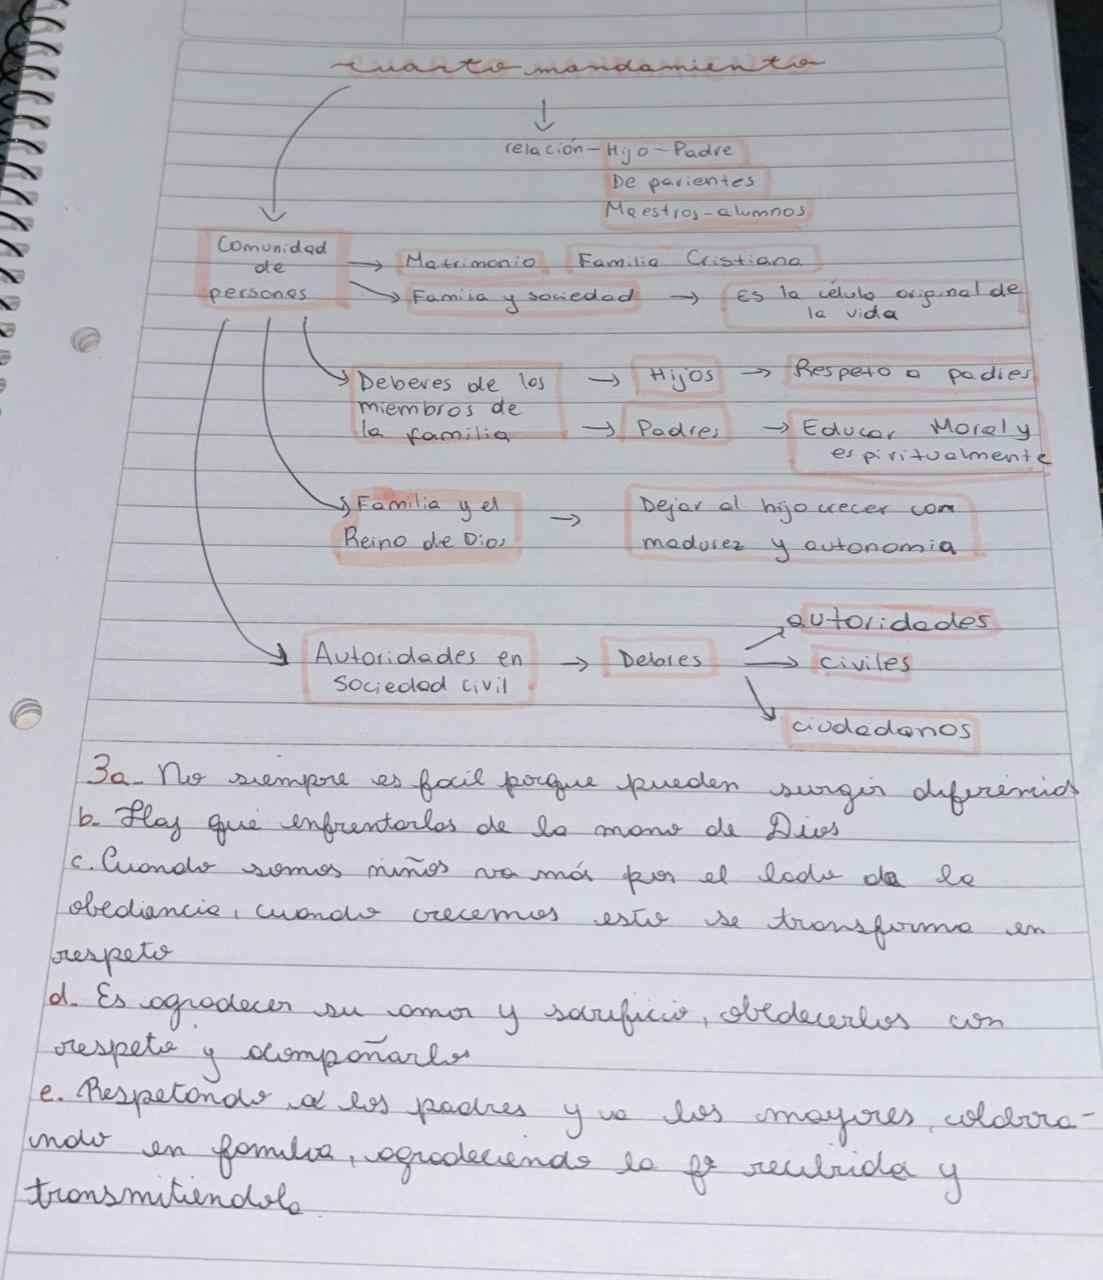 cuarto mandamiento
relación - Hijo - Padre
De parientes
Maestros - alumnos
Comunidad
de
personas
Matrimonio Familia Cristiana
Familia y sociedad → Es la célula original de
la vida
Deberes de los → Hijos → Respeto a padres
miembros de
la familia → Padres → Educar Moral y
espiritualmente
Familia y el → Dejar al hijo crecer con
Reino de Dios madurez y autonomia
autoridades
Autoridades en → Debres → civiles
sociedad civil
ciudadanos
3a- No siempre es facil porque pueden surgir diferencias
b. Hay que enfrentarlas de la mano de Dios
c. Cuando somos niños va más por el lado de la
obediancia, cuando crecemos esto se transforma en
respeto
d. Es agradecer su amor y sacrificio, obedecerlos con
respeto y acompañarlos
e. Respetando a los padres y a los mayores, colabora-
ndo en familia, agradeciendo la fe recibida y
transmitiéndola.